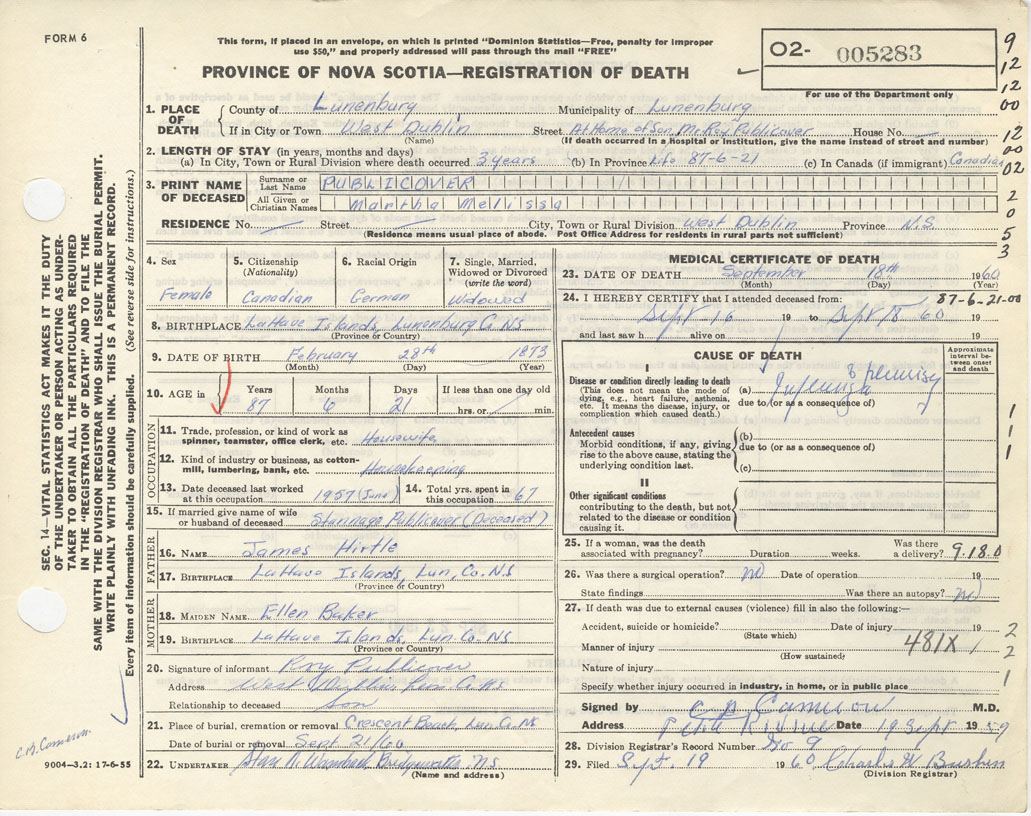 FORM 6
This form, if placed in an envelope, on which is printed "Dominion Statistics—Free, penalty for improper
use $50," and properly addressed will pass through the mail "FREE"
PROVINCE OF NOVA SCOTIA—REGISTRATION OF DEATH
O2- 005283
For use of the Department only
9
12
12
00
12
00
02
2
0
5
3
SEC. 14—VITAL STATISTICS ACT MAKES IT THE DUTY
OF THE UNDERTAKER OR PERSON ACTING AS UNDER-
TAKER TO OBTAIN ALL THE PARTICULARS REQUIRED
IN THE "REGISTRATION OF DEATH" AND TO FILE THE
SAME WITH THE DIVISION REGISTRAR WHO SHALL ISSUE THE BURIAL PERMIT.
WRITE PLAINLY WITH UNFADING INK. THIS IS A PERMANENT RECORD.
Every item of information should be carefully supplied. (See reverse side for instructions.)
1. PLACE OF DEATH
County of Lunenburg Municipality of Lunenburg
If in City or Town West Dublin Street At Home of Son Mr Roy Publicover House No.
(Name) (If death occurred in a hospital or institution, give the name instead of street and number)
2. LENGTH OF STAY (in years, months and days)
(a) In City, Town or Rural Division where death occurred 3 years (b) In Province Life 87-6-21 (c) In Canada (if immigrant) Canadian
3. PRINT NAME OF DECEASED
Surname or Last Name PUBLICOVER
All Given or Christian Names Martha Melissa
RESIDENCE No. Street City, Town or Rural Division West Dublin Province N.S.
(Residence means usual place of abode. Post Office Address for residents in rural parts not sufficient)
4. Sex Female
5. Citizenship (Nationality) Canadian
6. Racial Origin German
7. Single, Married, Widowed or Divorced (write the word) Widowed
8. BIRTHPLACE LaHave Islands, Lunenburg Co NS
(Province or Country)
9. DATE OF BIRTH February 28th 1873
(Month) (Day) (Year)
10. AGE in Years 87 Months 6 Days 21 If less than one day old hrs. or min.
OCCUPATION
11. Trade, profession, or kind of work as spinner, teamster, office clerk, etc. Housewife
12. Kind of industry or business, as cotton-mill, lumbering, bank, etc. Housekeeping
13. Date deceased last worked at this occupation 1957 (June) 14. Total yrs. spent in this occupation 67
15. If married give name of wife or husband of deceased Stannage Publicover (Deceased)
FATHER
16. NAME James Hirtle
17. BIRTHPLACE LaHave Islands, Lun, Co. N.S
(Province or Country)
MOTHER
18. MAIDEN NAME Ellen Baker
19. BIRTHPLACE LaHave Islands, Lun. Co. N.S
(Province or Country)
20. Signature of informant Publicover
Address West Dublin Lun Co. NS
Relationship to deceased son
21. Place of burial, cremation or removal Crescent Beach, Lun. Co NS
Date of burial or removal Sept 21/60
22. UNDERTAKER Bridgewater NS
(Name and address)
C.B. Cameron
9004—3.2: 17-6-55
MEDICAL CERTIFICATE OF DEATH
23. DATE OF DEATH September 18th 1960
(Month) (Day) (Year)
87-6-21-00
24. I HEREBY CERTIFY that I attended deceased from:
Sept 16 19 to Sept 18 60 19
and last saw h alive on 19
CAUSE OF DEATH
Approximate interval between onset and death
I
Disease or condition directly leading to death
(This does not mean the mode of dying, e.g., heart failure, asthenia, etc. It means the disease, injury, or complication which caused death.)
(a) Influenza & Pleurisy
due to (or as a consequence of)
Antecedent causes
Morbid conditions, if any, giving rise to the above cause, stating the underlying condition last.
(b)
due to (or as a consequence of)
(c)
II
Other significant conditions
contributing to the death, but not related to the disease or condition causing it.
1
1
1
25. If a woman, was the death associated with pregnancy? Duration weeks. Was there a delivery? 9.18.0
26. Was there a surgical operation? no Date of operation 19
State findings Was there an autopsy? no
27. If death was due to external causes (violence) fill in also the following:—
Accident, suicide or homicide? Date of injury 19
(State which)
Manner of injury 481X
(How sustained)
Nature of injury
Specify whether injury occurred in industry, in home, or in public place
2
2
1
Signed by C B Cameron M.D.
Address Petite Riviere Date 19 Sept 1959
28. Division Registrar's Record Number No 9
29. Filed Sept. 19 1960 Charles W
(Division Registrar)